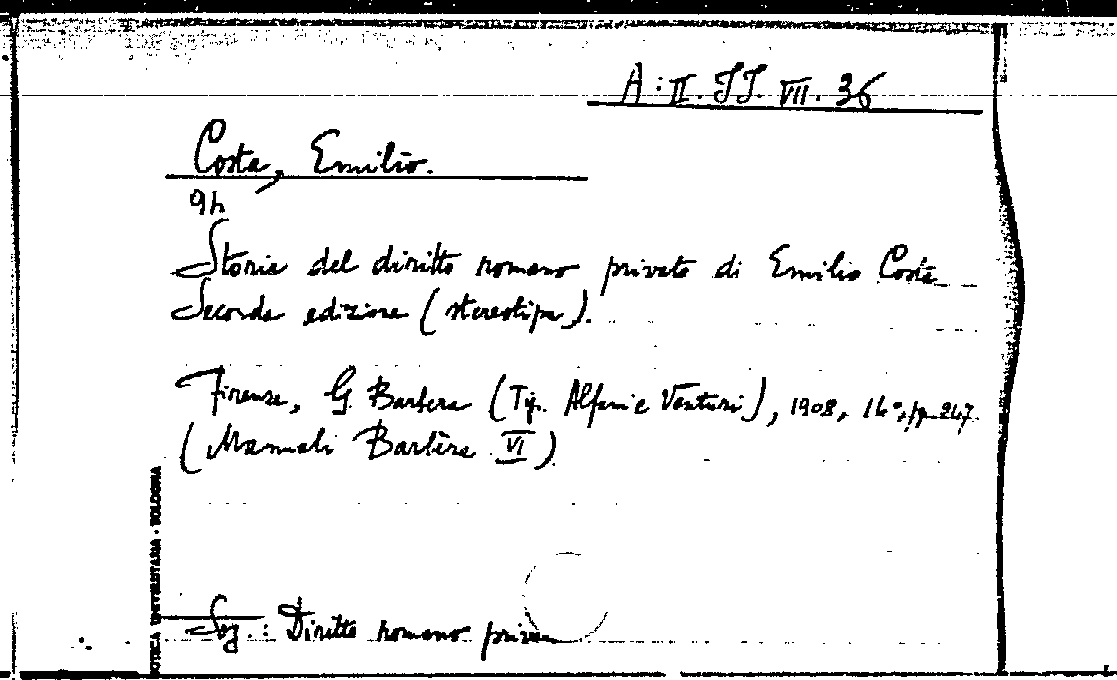 A : II. JJ. VII. 36
Costa, Emilio.
9h
Storia del diritto romano privato di Emilio Costa
Seconda edizione (stereotipa).
Firenze, G. Barbèra (Tip. Alfani e Venturi), 1908, 16°, pp. 247.
(Manuali Barbèra VI)
Sog.: Diritto romano
OTECA UNIVERSITARIA - BOLOGNA